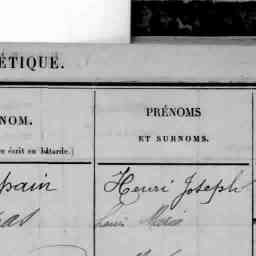 ÉTIQUE.
NOM.
PRÉNOMS
ET SURNOMS.
re écrit en bâtarde.)
pain Henri Joseph
Louis Marie